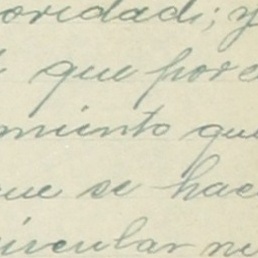 oridad; y
que por
miento qu
que se hac
circular ne